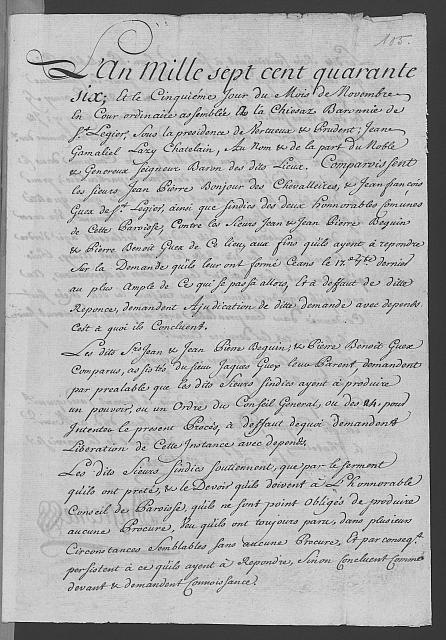 105.
L'An Mille sept cent quarante
six; Et le Cinquiéme Jour du Mois de Novembre
En Cour ordinaire assemblée a la Chiesaz Baronnie de
St. Legier, Sous la presidence de Vertueux & Prudent; Jean
Gamaliel Lory Chatelain, Au Nom & de la part du Noble
& Genereux Seigneur Baron des dits Lieux. Comparoissent
les sieurs Jean Pierre Bonjour des Chevalleires, & Jean françois
Guex de St. Legier, ainsi que sindics des deux honnorables Comunes
de Cette Paroisse, Contre les Sieurs Jean & Jean Pierre Beguin
& Pierre Benoit Guex de Ce lieu, aux fins qu'ils ayent à repondre
Sur la Demande qu'ils leur ont formé Ceans le 17.e 7.bre dernier
au plus Ample de Ce qui se passa allors, Et à deffaut de ditte
Reponce, demandent Ajudication de ditte demande avec depends
C'est à quoi ils Concluent.
Les dits Srs Jean & Jean Pierre Beguin; & Pierre Benoit Guex
Comparus, assistés du sieur Jaques Guex leur Parent, demandent
par prealable que les dits Sieurs sindics ayent à produire
un pouvoir, ou un Ordre du Conseil General, ou des 24, pour
Intenter le present Procès, à deffaut dequoi demandent
Liberation de Cette Instance avec depends.
Les dits Sieurs sindics soutiennent, que par le serment
qu'ils ont preté, & le Devoir qu'ils doivent à L'Honnorable
Conseil de Paroisse, qu'ils ne sont point Obligés de produire
aucune Procure, Veu qu'ils ont toujours paru, dans plusieurs
Circonstances semblables sans aucune Procure, Et par conseqt.
persistent à ce qu'ils ayent à Repondre, sinon Concluent Comme
devant & demandent Connoissance.